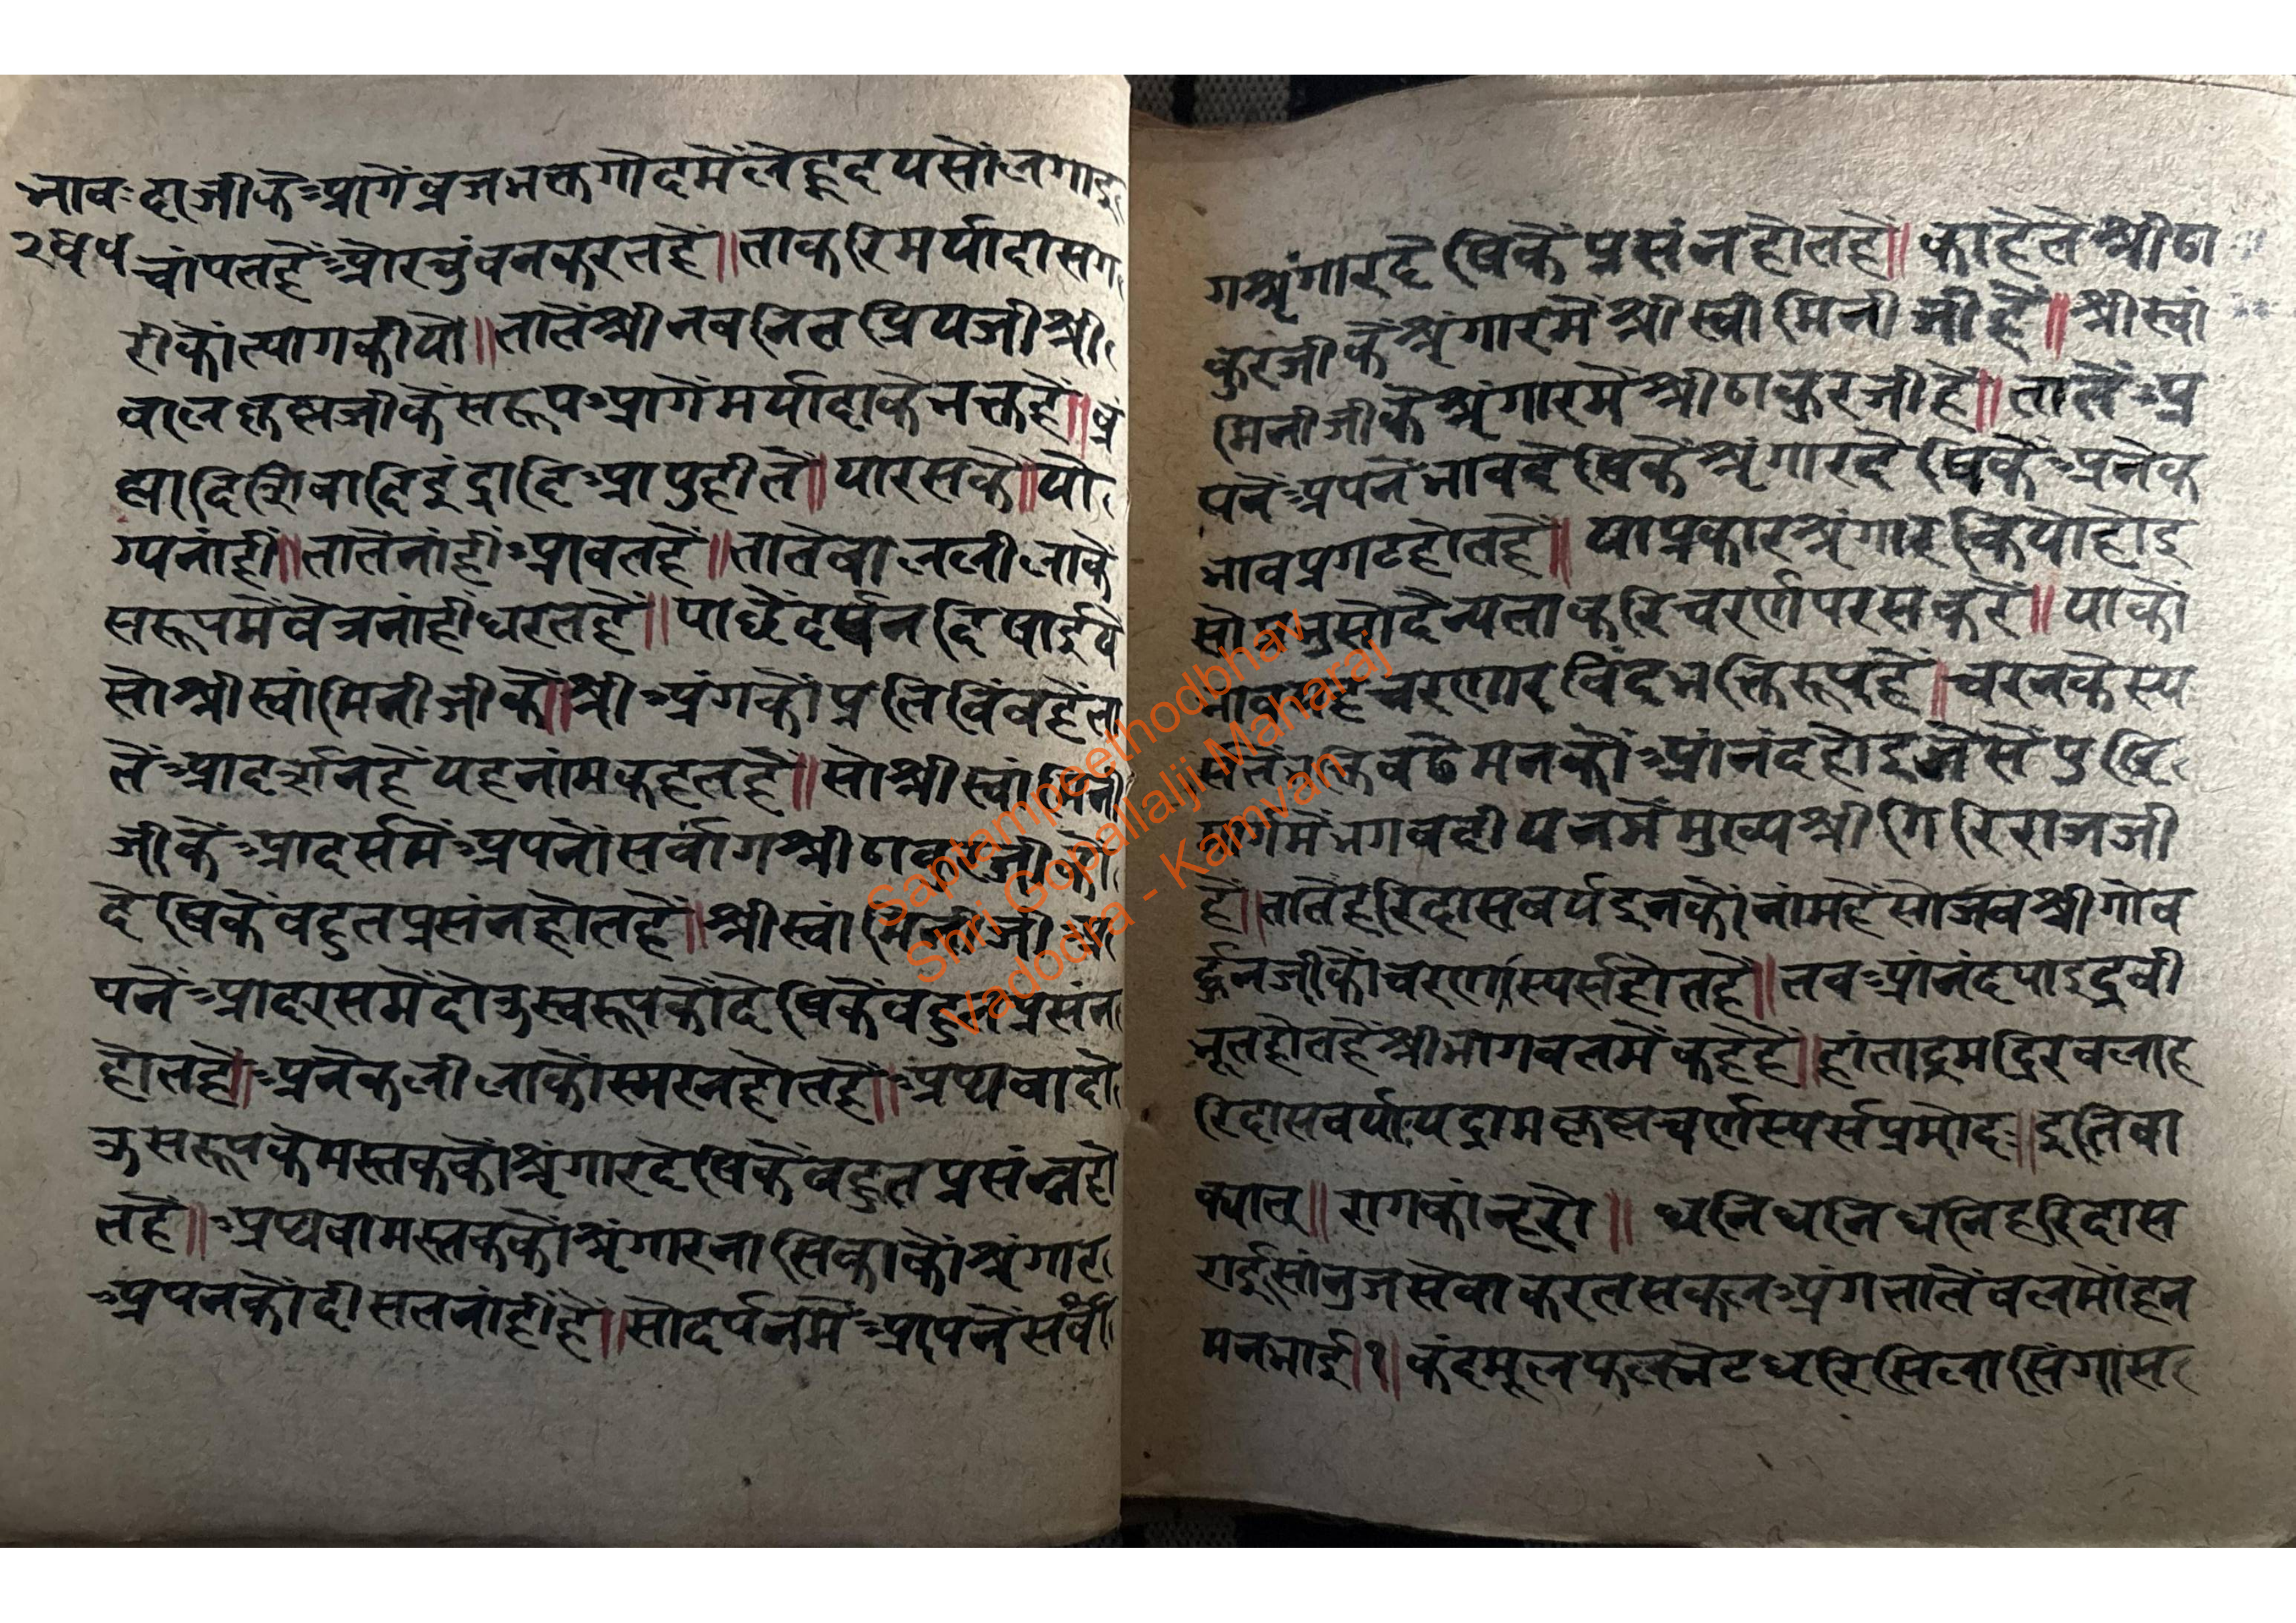 भाव॰
२४५
दाजीकेंआगेंव्रजभक्तगोदमेंलेहृदयसोंलगाइ
चांपतहेंओरचुंबनकरतहें॥ताकरिमर्यादासग
रीकोंत्यागकीयो॥तातेंश्रीनवनितप्रियजीश्री
बालकृष्णजीकेंसरूपआगेंमर्यादाकेभक्तहें॥ब्र
ह्मादिशिवादिइंद्रादिआपुहीते॥यारसके॥यो
ग्यनांहीं॥तातेंनांहींआवतहें॥तातेबाललीलाके
सरूपमेंवेत्रनांहींधरतहें॥पाछेंदर्पनदिषाईये
सोश्रीस्वांमिनीजीकें॥श्रीअंगकोंप्रतिबिंबहेंता
तेंआदर्शनहेंयहनांमकहतहें॥सोश्रीस्वांमिनी
जीकेंआदर्समेंअपनोंसर्वांगश्रीठाकुरजी
देखिकेंबहुतप्रसंनहोतहें॥श्रीस्वांमिनीजीअ
पनेंआदरसमेंदोऊस्वरूपकोंदेखिकेंबहुतप्रसंन
होतहे॥अनेकलीलाकोंस्मरनहोतहें॥अथवादो
ऊसरूपकेमस्तककोंश्रृंगारदेखिकेंबहुतप्रसंन्नहो
तहें॥अथवामस्तककोंश्रृंगारनासिकाकोंश्रृंगार
अपनकोंदीसतनांहींहें॥सोदर्पनमेंआपनेंसर्वां
गश्रृंगारदेखिकेंप्रसंनहोतहें॥काहेतेश्रीठा
कुरजीकेंश्रृंगारमेंश्रीस्वांमिनीजीहें॥श्रीस्वां
मिनीजीकेंश्रृंगारमेंश्रीठाकुरजीहें॥तातेंअ
पनेंअपनेंभावदेखिकेंश्रृंगारदेखिकेंअनेक
भावप्रगटहोतहें॥याप्रकारश्रृंगारकियोहोइ
सोदैन्यताकरिचरर्णपरसकरें॥याकों
चरणारविंदभक्तिरूपहें॥चरनकेस्प
र्सतेंभक्तिबढेमनकोंआंनंदहोइजेसेंपुष्टि
मार्गमेंभगवदीयनमेंमुख्यश्रीगिरिराजजी
हें॥तातेंहरिदासवर्यइनकोंनांमहेंसोजबश्रीगोव
र्द्धनजीकोंचरणास्पर्सहोतहें॥तवआंनंदपाइद्रवी
भूतहोतहेंश्रीभागवतमेंकहेहें॥हंताद्रुमद्रिरबलाह
रिदासवर्योयद्रामकृष्णचर्णस्पर्सप्रमोदः॥इतिवा
क्यात्॥रागकांन्हरो॥धनिधनिधनिहरिदास
राईसांनुजसेवाकरतसकलअंगतातेंबलमोंहन
मनभाई।१॥कंदमूलफलभेटधरिसिलासिंगांस